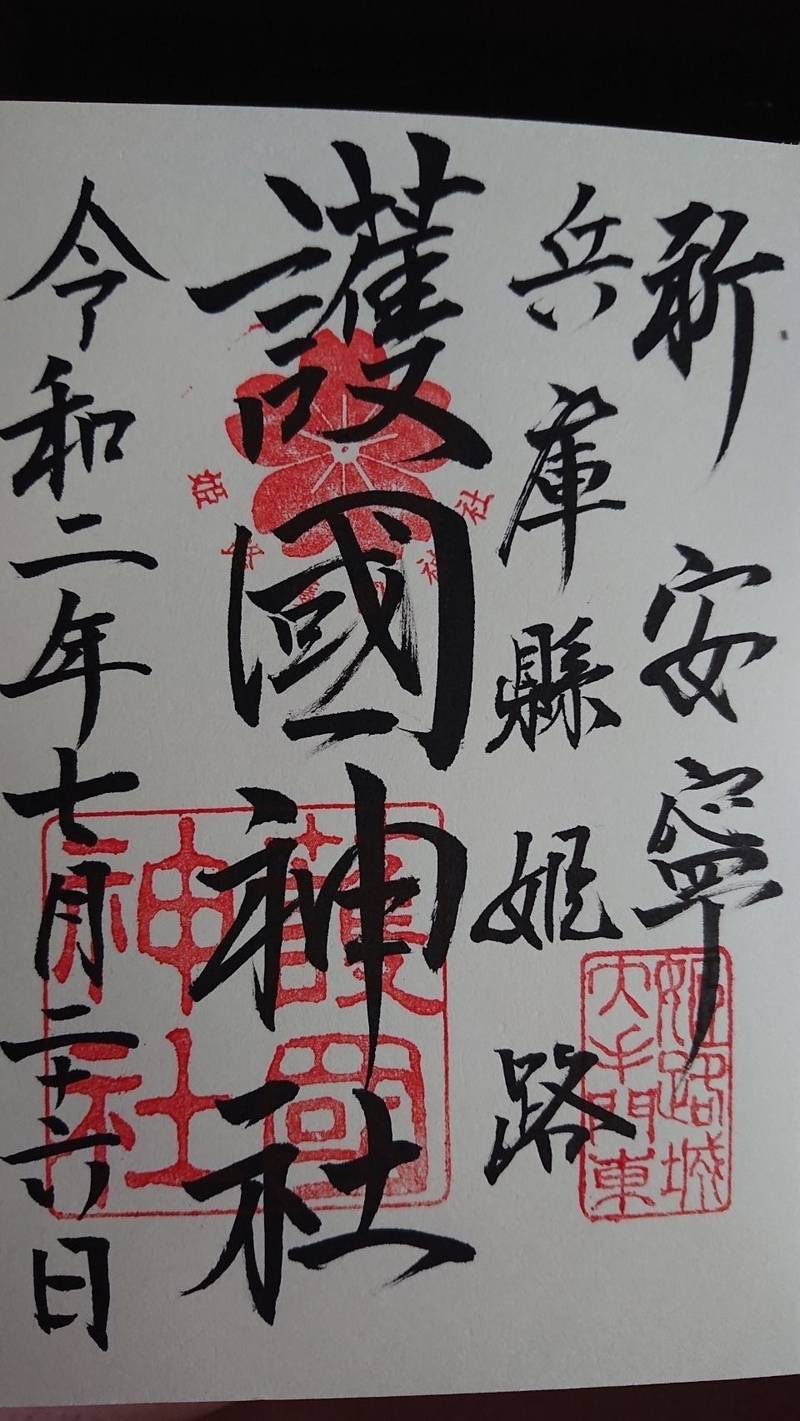 祈 安寧
姫路城
大手門東
兵庫縣姫路
護國神社
護國
神社
令和二年七月二十六日